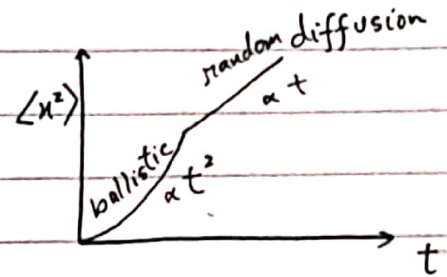 random diffusion
∝ t
⟨x²⟩
ballistic
∝ t²
t